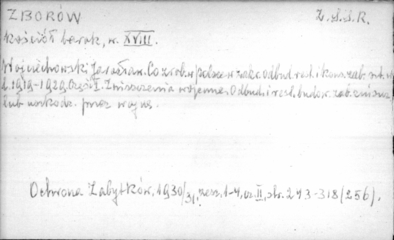 ZBORÓW
Z.S.S.R.
Kościół barok, w. XVIII.
Wojciechowski Jarosław. Co zrobiono w Polsce w zakr. odbud. rest. i kons. zab. szt. w
l. 1919-1929. Część I. Zniszczenia wojenne. Odbud. i rest. budow. zab. zniszcz.
lub uszkodz. przez wojnę.
Ochrona Zabytków, 1930/31, zesz. 1-4, cz. II, str. 243-318 (256).